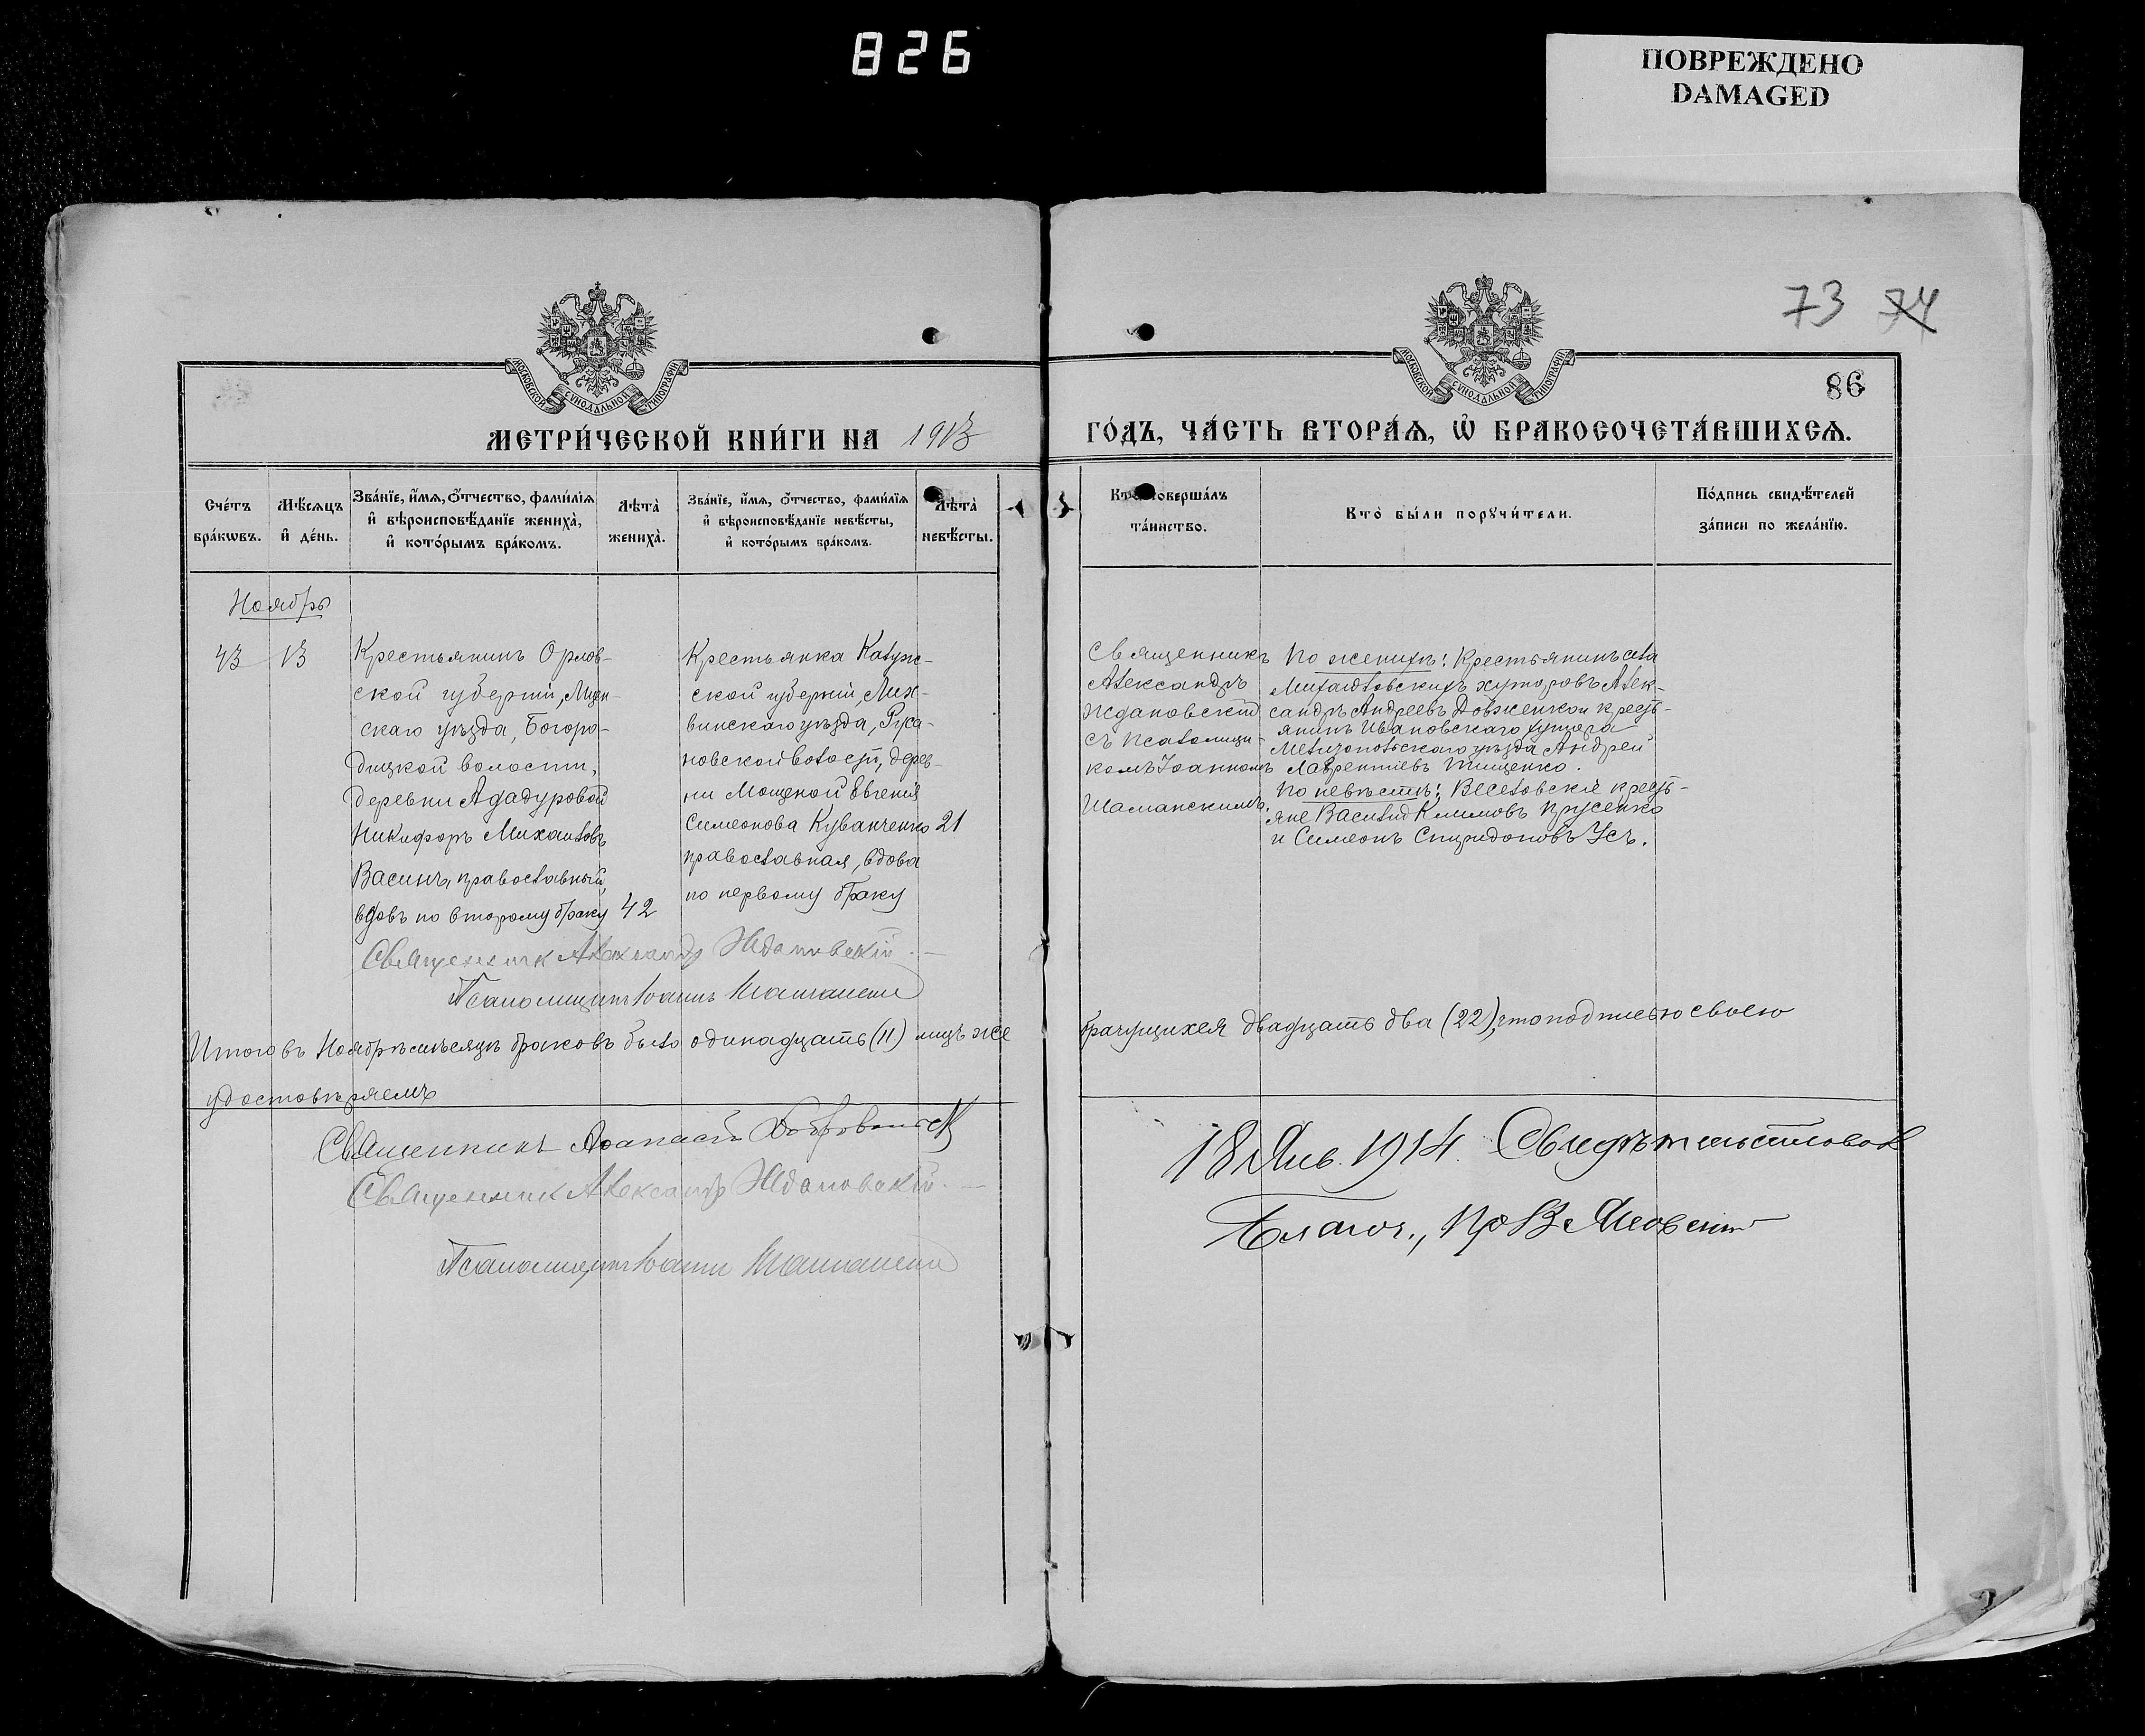 826
ПОВРЕЖДЕНО
DAMAGED
73 74
86
МОСКОВСКОЙ СѴНОДАЛЬНОЙ ТИПОГРАФІИ
МОСКОВСКОЙ СѴНОДАЛЬНОЙ ТИПОГРАФІИ
МЕТРИ́ЧЕСКОЙ КНИ́ГИ НА 1913
ГО́ДЪ, ЧА́СТЬ ВТОРА́Ѧ, Ѽ БРАКОСОЧЕТА́ВШИХСѦ.
Сче́тъ
бра́кѡвъ.
Мѣ́сяцъ
и҆ де́нь.
Зва́нїе, и҆́мѧ, ѻ҆́тчество, фами́лїѧ
и҆ вѣроисповѣ́данїе жениха̀,
и҆ кото́рымъ бра́комъ.
Лѣ́та̀
жениха̀.
Зва́нїе, и҆́мѧ, ѻ҆́тчество, фами́лїѧ
и҆ вѣроисповѣ́данїе невѣ́сты,
и҆ кото́рымъ бра́комъ.
Лѣ́та̀
невѣ́сты.
Кто̀ соверша́лъ
та́инство.
Кто̀ бы́ли порꙋчи́тели.
По́дпись свидѣ́телей
за́писи по жела́нїю.
Ноябрь
43
13
Крестьянинъ Орлов-
ской губерніи, Мцен-
скаго уѣзда, Богоро-
дицкой волости,
деревни Ададуровой
Никифоръ Михаиловъ
Васинъ, православный,
вдовъ по второму браку
42
Крестьянка Калуж-
ской губерніи, Лих-
винскаго уѣзда, Ржа-
новской волости, дерев-
ни Мощеной Евгенія
Симеонова Куванченко
православная, вдова
по первому браку
21
Священникъ
Александръ
Ждановскій
съ псаломщи-
комъ Іоанномъ
Шаманскимъ.
По женихѣ: крестьянинъ села
Михайловскихъ хуторовъ Алек-
сандръ Андреевъ Довженко и крест-
янинъ Ивановскаго хутора
Мелитопольскаго уѣзда Андрей
Лаврентіевъ Тищенко.
По невѣстѣ: Веселовскіе крест-
яне Василій Климовъ Прусенко
и Симеонъ Спиридоновъ Усъ.
Священник Александр Ждановскій.
Псаломщикъ Іоаннъ Шаманскій
Итого въ Ноябрѣ мѣсяцѣ браковъ было одинадцать (11) лицъ же
брачущихся двадцать два (22), что подписью своею
удостовѣряемъ
Священникъ Аѳанасій
Священник Александр Ждановскій.
Псаломщикъ Іоаннъ Шаманскій
18 Янв. 1914. Свидѣтельствовал
Благоч., Пр.